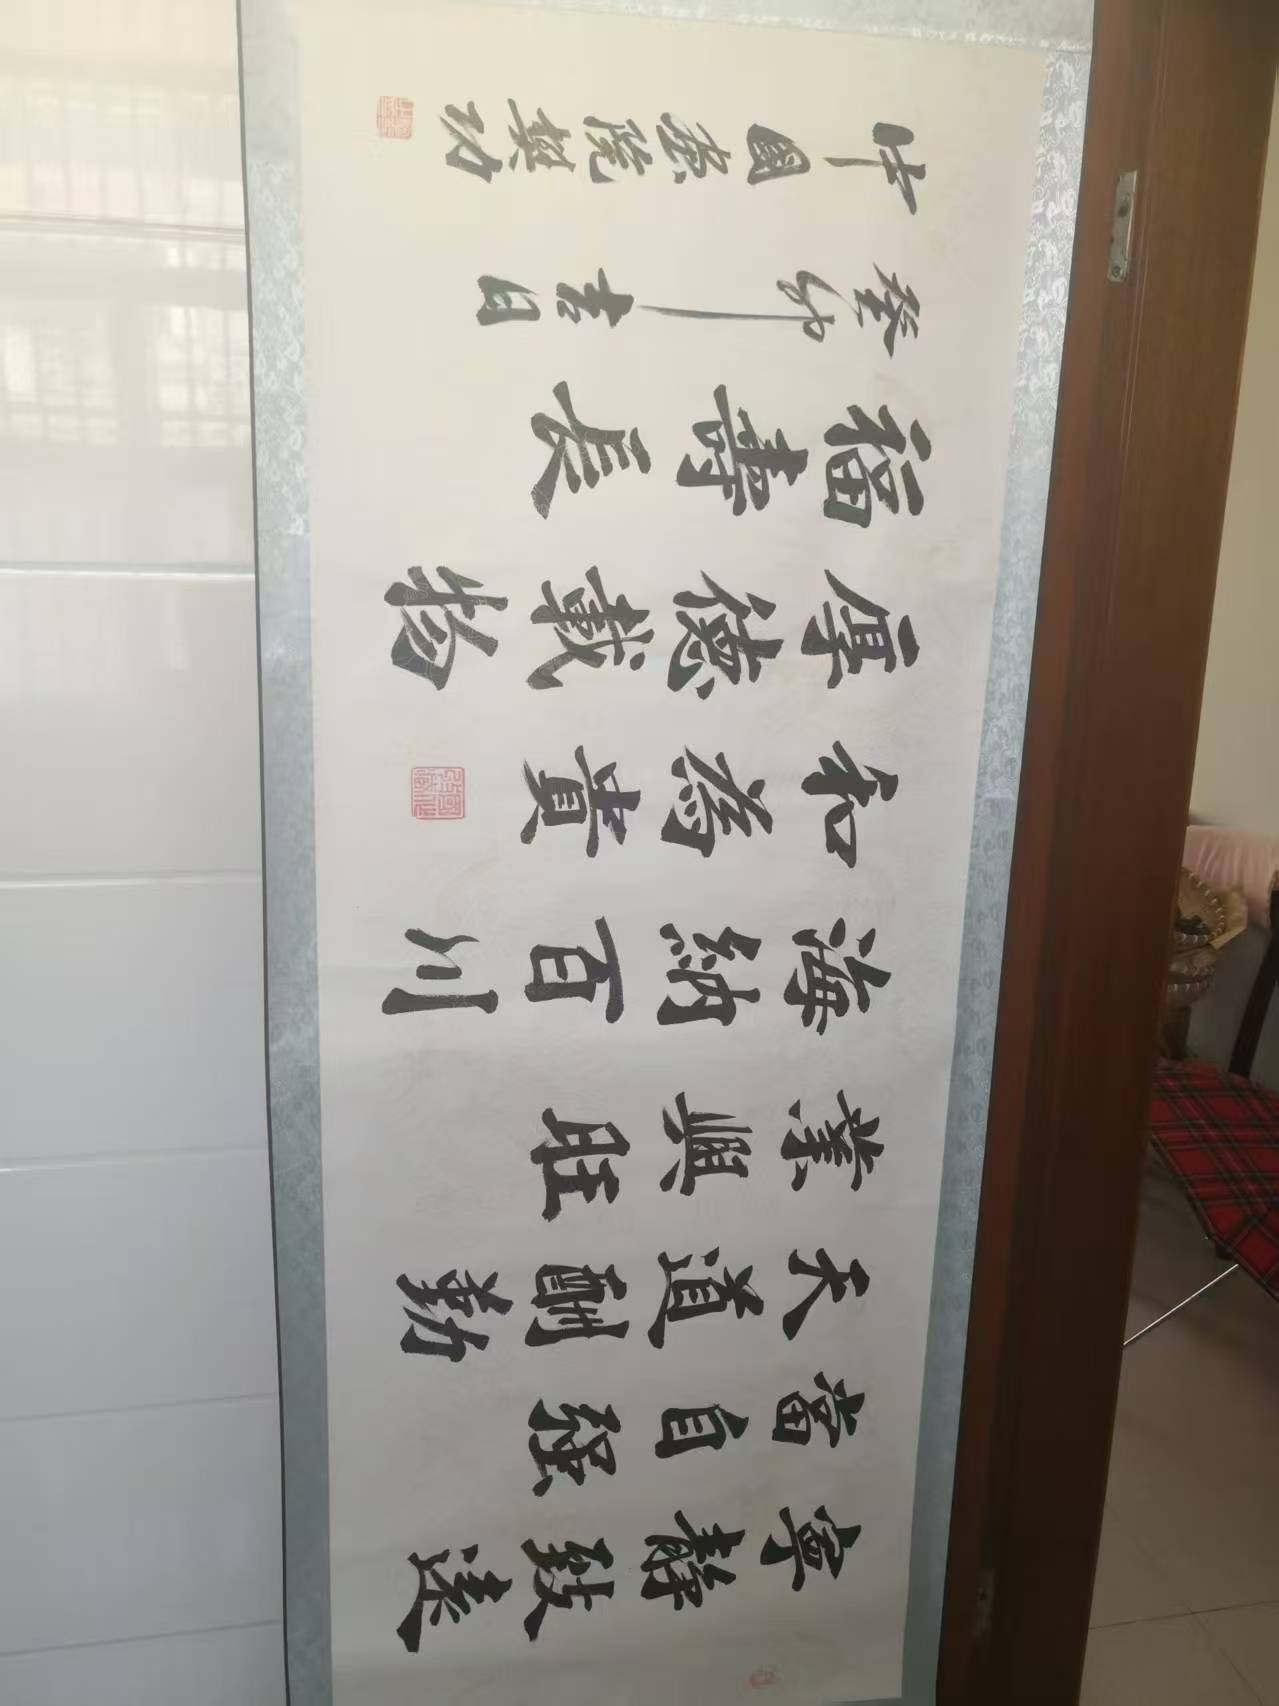 寧靜致遠
當自強
天道酬勤
業興旺
海納百川
和為貴
厚德載物
福壽長
癸卯吉日